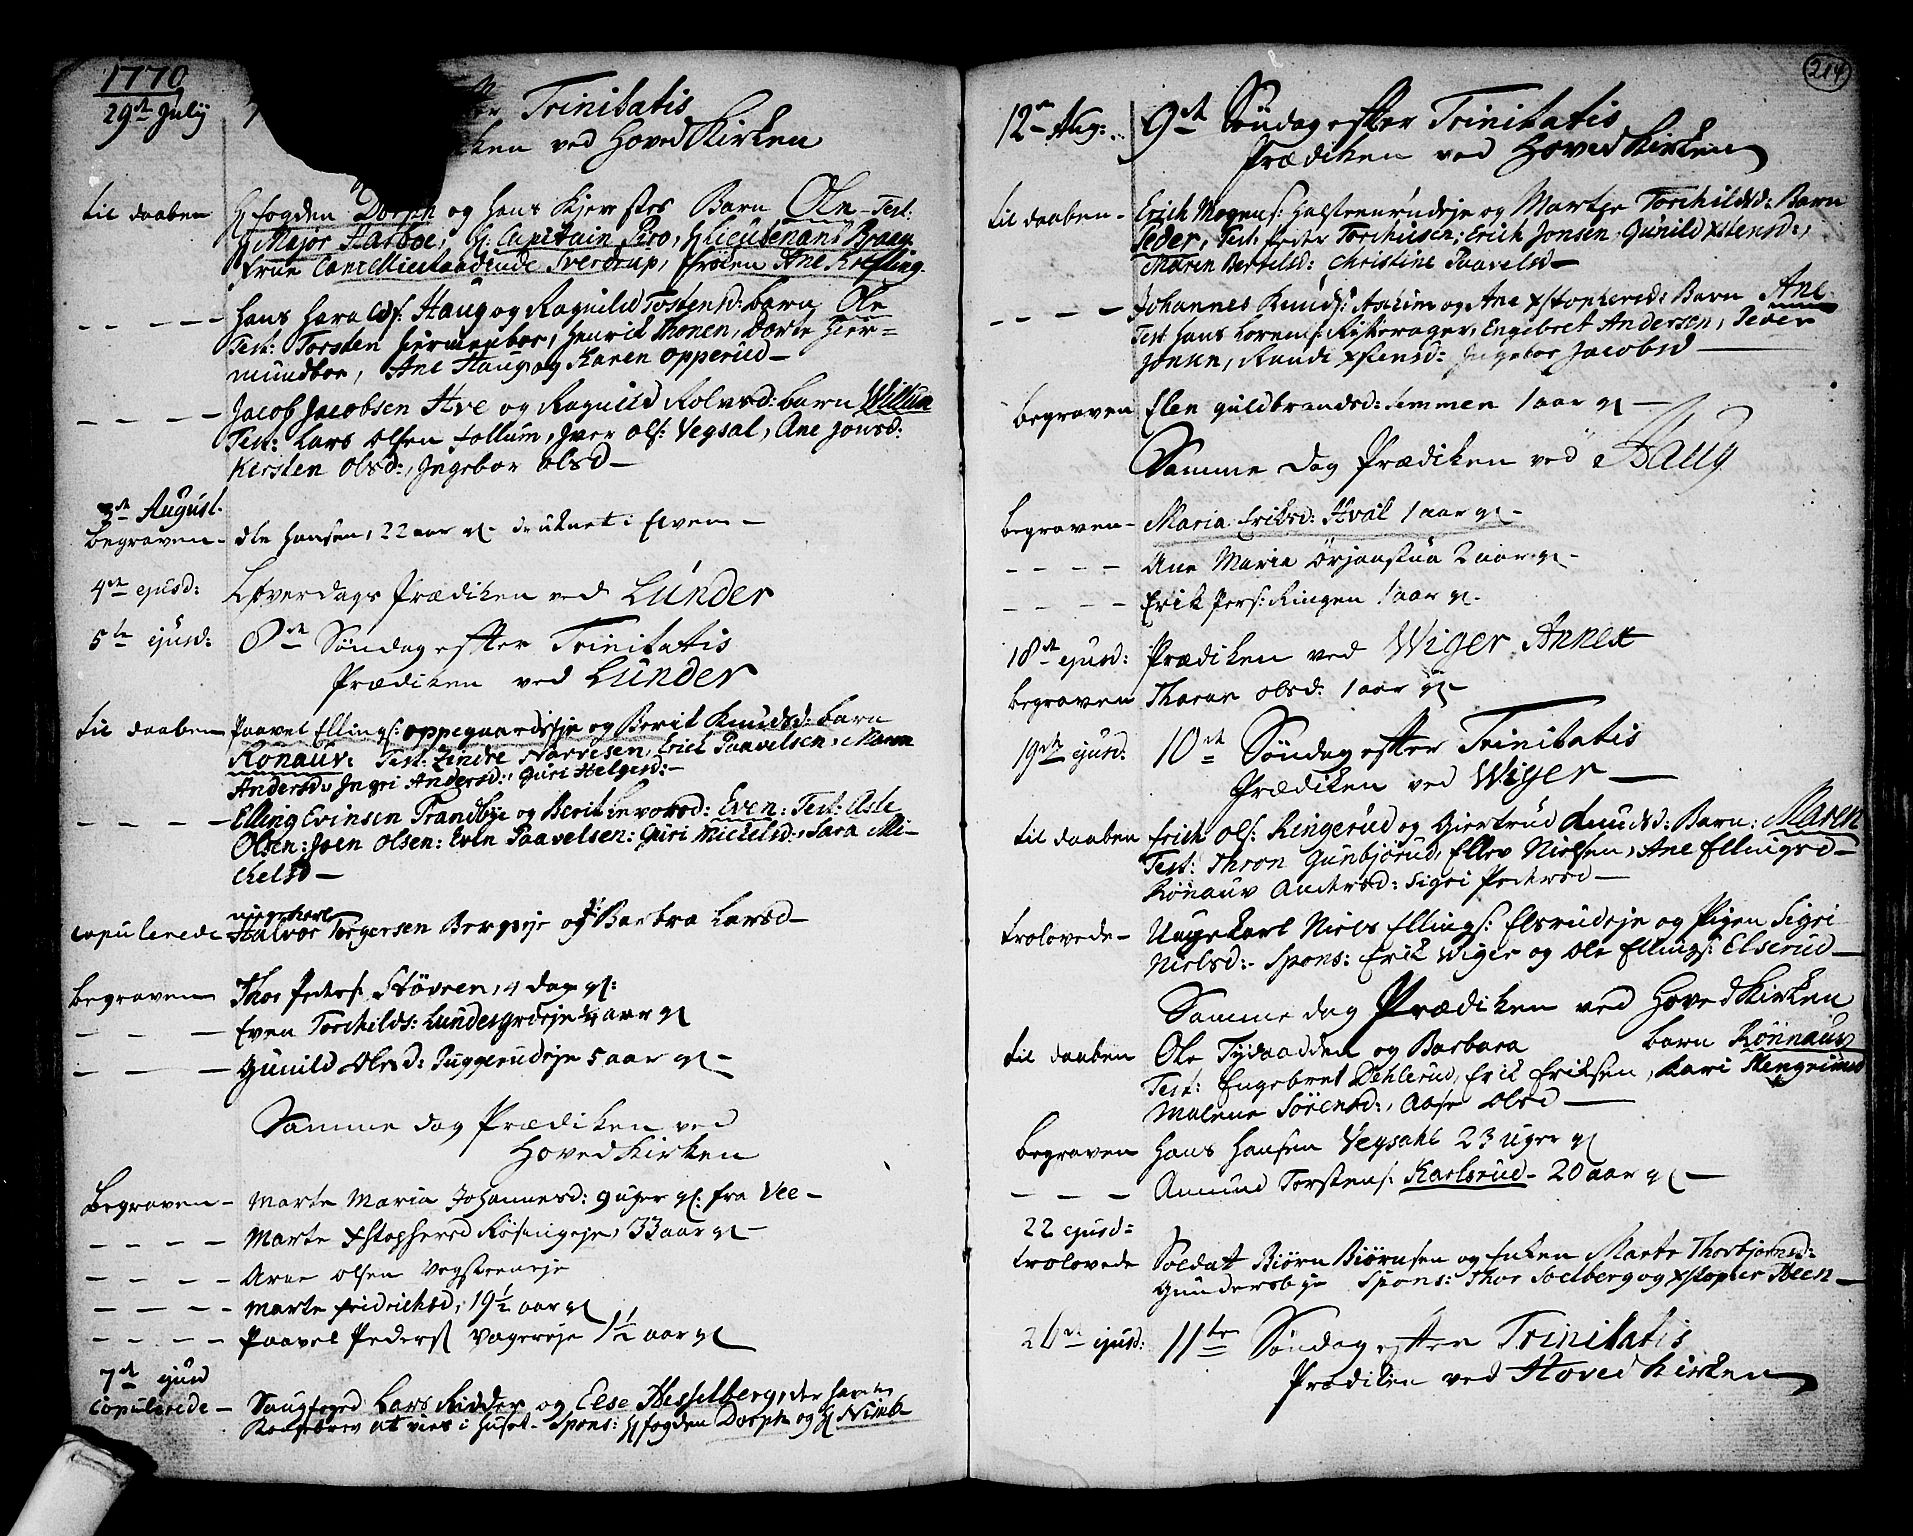 1770
29de July Trinitatis
ken ved HovedKirken
til daaben Hr fogden Dorph og hans Kjerestes Barn Ole - Test:
Hr Major Harboe, Hr Capitain Hr Lieutenant
frue Cancellieraadinde Sverdrup, frøken Ane Krefting.
- - - - Hans Haralds: Haug og Ragnild Tostensd: barn Ole
Test: Torsten Hiermundboe, Henrik Thonen, Dorte Hier=
mundboe, Ane Haug og Karen Opperud -
- - - - Jacob Jacobsen Ave og Ragnild Rolvsd: barn Willum
Test: Lars Olsen Follum, Iver Ols: Vegsal, Ane Jonsd:
Kersten Olsd:, Ingebor Olsd -
3de August.
begraven - Ole Hansen, 22 aar gl - druknet i Elven -
4de ejusd: Løverdags Prædiken ved Lunder
5te ejusd: 8de Søndag efter Trinitatis
Prædiken ved Lunder
til daaben Paavel Ellings: oppegaardseje og Berit Knudsd: barn
Ronauv: Test: Endre Narvesen, Erick Paavelsen, Maren
Andersd:, Ingri Andersd:, Guri Helgesd: -
- - - - Elling Evinsen Trandbye og Berit Levorsd: Even: Test: Asle
Olsen: Joen Olsen: Even Paavelsen: Guri Mickelsd: Sara Mi-
chelsd -
ungekarl
copulerede Halvor Torgersen Bergseje og Pi: Barbra Larsd -
begraven Thor Peders: Støvren, 4 dage gl:
- - - Even Torchilds: Lunderseje 1/4 aar gl
- - - Gunild Olsd: Puggerudeje 5 aar gl -
Samme dag Prædiken ved
HovedKirken
Begraven - Marte Maria Johannesd: 9 uger gl. fra Vee -
- - - - Marte Xstophersd Røsingeje, 33 aar gl -
- - - - Arne Olsen Vegsteeneje
- - - - Marte Fridrichsd, 19 1/2 aar gl
- - - - Paavel Peders Vagereje 1 1/2 aar gl
7de ejusd
Copulerede - Saugfoged Lars Ridder og Else Hesselberg, der havde
Kongebrev at vies i Huset - Spons: Hr fogden Dorph og Hr Nimb
214
12te Aug: 9de Søndag efter Trinitatis
Prædiken ved HovedKirken
til daaben - Erich Mogens: Halsteenrudeje og Martje Torchildsd: Barn
Peder, Test: Peder Torchilsen, Erich Jonsen, Gunild Xstensd:,
Maren Bertelsd: Christine Paavelsd -
- - - - Johannes Knuds: Askim og Ane Xstophersd: Barn Ane
Test Hans Lorens: Rytterager, Engebret Andersen, Peder
Jonsen, Randi Xstensd: Ingebor Jacobsd -
begraven Elen Guldbrandsd: Semmen 1 aar gl -
Samme Dag Prædiken ved Haug
begraven - Maria Eriksd: Hval 1 aar gl -
- - - - Ane Maria Ørjanstua 2 aar gl -
- - - - Erik Pers: Ringen 1 aar gl -
18de ejusd: Prædiken ved Wiger Annex
begraven Tharan Olsd: 1 aar gl -
19de ejusd. 10de Søndag efter Trinitatis
Prædiken ved Wiger -
til daaben Erich Ols: Ringerud og Giertrud Knudsd: Barn: Maren
Test: Thron Gunbjørud, Ellev Nielsen, Ane Ellingsd -
Rønauv Andersd: Sigri Pedersd -
trolovede - Ungekarl Niels Ellings: Elsrudeje og Pigen Sigri
Nielsd: - Spons: Erik Wiger og Ole Ellings: Elserud -
Samme dag Prædiken ved HovedKirken
til daaben Ole Tydaadden og Barbara barn Rønnauv
Test: Engebret Dehlerud, Erik Eriksen, Kari Stengrimsd
Malene Sørensd:, Aase Olsd -
Begraven Hans Hansen Vegsahl 23 uger gl
- - - Anund Torstens: Karlsrud - 20 aar gl -
22 ejusd:
trolovede Soldat Biørn Biørnsen og Enken Marte Thorbjørnsd:
Gundersbye Spons: Thor Soelberg og Xstopher Been -
26de ejusd: 11te Søndag efter Trinitatis
Prædiken ved HovedKirken